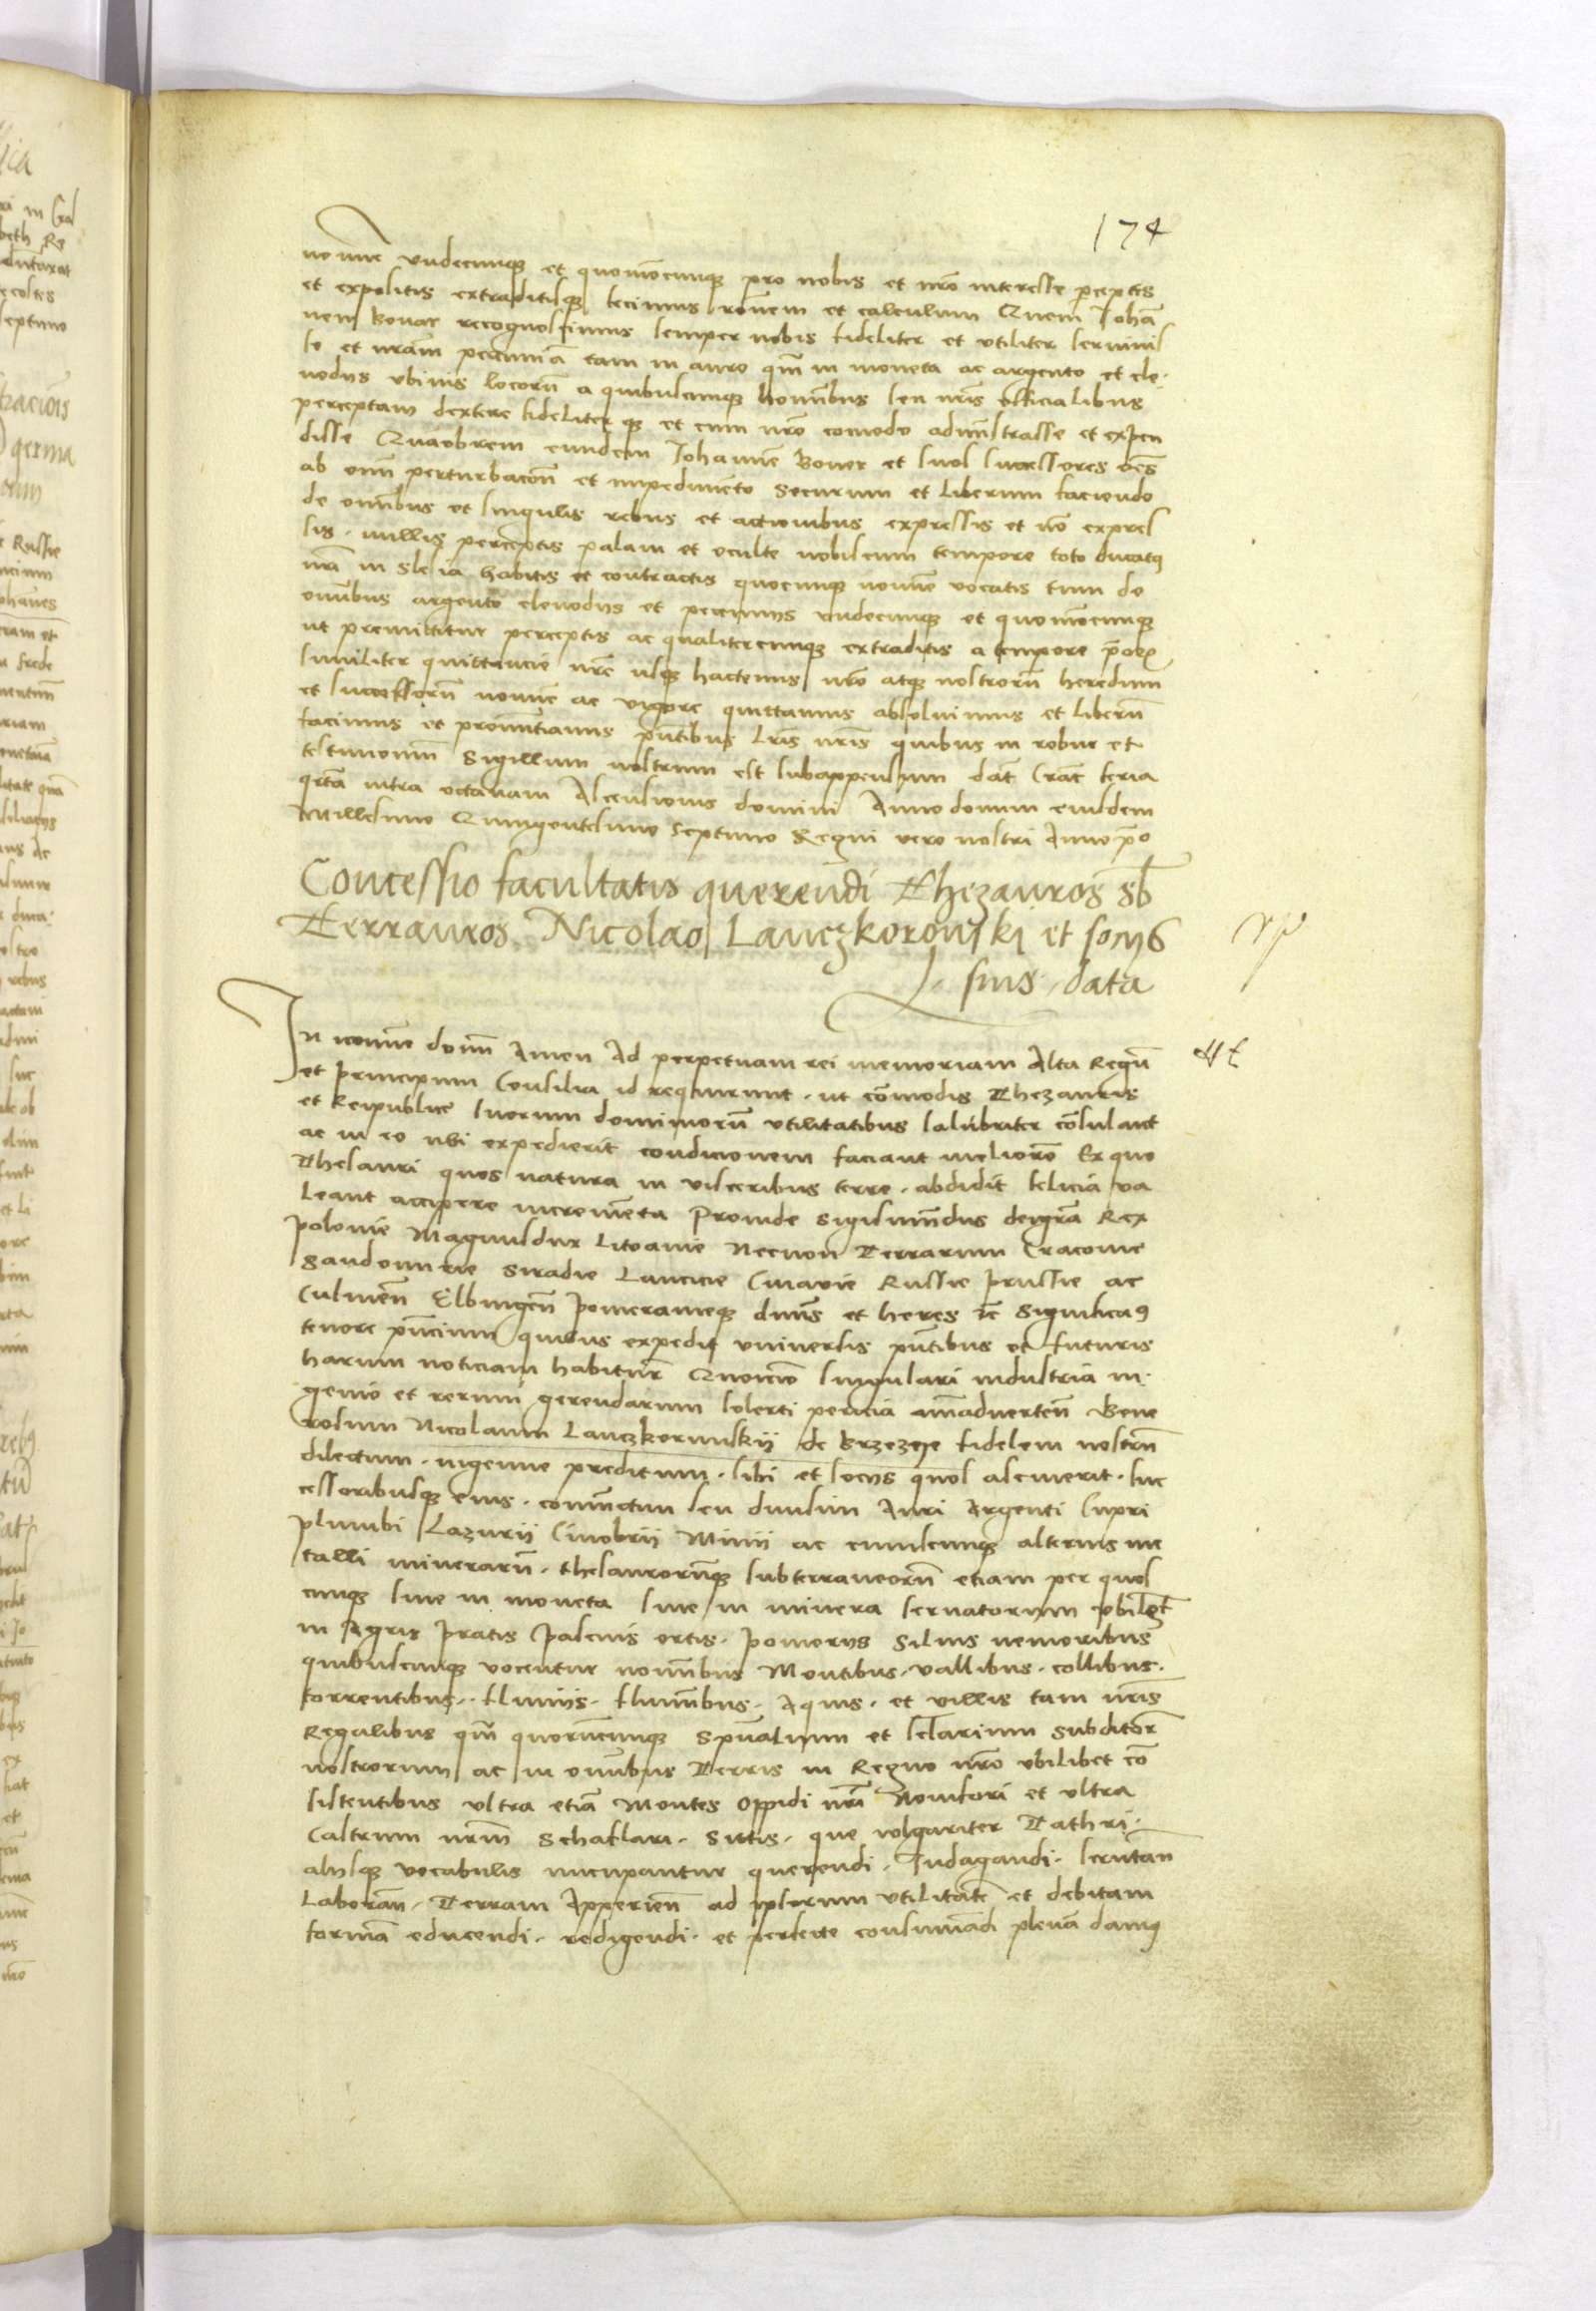 174
nomine undecunque et quomodocunque pro nobis et nro interesse perceptis
et expositis extraditisque fecimus ronem et calculum Quem Johan
nem Bonar recognoscimus semper nobis fideliter et utiliter servivis
se et nram pecuniam tam in auro qm in moneta ac argento et cle
nodiis ubivis locorum a quibuscunque hominibus seu nris officialibus
perceptam dextere fideliterque et cum nro comodo administrasse et expen
disse Quaobrem eundem Johannem Boner et suos successores oes
ab omni perturbacione et impedimento securum et liberum faciendo
de omnibus et singulis rebus et actionibus expressis et non expres
sis nullis perceptis palam et oculte nobiscum tempore toto ducatus
nri in Slesia habitis et contractis quocunque nomine vocatis tum de
omnibus argento clenodiis et pecuniis undecunque et quomodocunque
ut premittitur perceptis ac qualitercunque extraditis a tempore
similiter quittancie nre usque hactenus nro atque nostrorum heredum
et successorum nomine ac vigore quittamus absolvimus et liberum
facimus et pronuntiamus pntibus lris nris quibus in robur et
testimonium Sigillum nostrum est subappensum dat Crac feria
qrta intra octavam Ascensionis domini Anno domini eiusdem
Millesimo Quingentesimo septimo Regni vero nostri Anno pmo
Concessio facultatis querendi Thezauros sb
Terraneos Nicolao Lanczkorowski et sociis
suis data
In nomine domini Amen Ad perpetuam rei memoriam Alta Regum
et principum Consilia id requirunt ut comodis Thezauris
et Reipublice suorum dominiorum utilitatibus salubriter consulant
ac in eo ubi expedierit condicionem faciant meliorem Ex quo
Thesauri quos natura in visceribus terre abdidit felicia va
leant accipere incrementa Proinde Sigismundus dei gra Rex
Polonie Magnusdux Litvanie Necnon Terrarum Cracovie
Sandomirie Siradie Lancicie Cuiavie Russie Prussie ac
Culmen Elbingen Pomeranieque dnus et heres etc Significamus
tenore pncium quibus expedit universis pntibus et futuris
harum noticiam habituris Quomodo singulari industria in
genio et rerum gerendarum solerti pericia animadverten Gene
rosum Nicolaum Lanczkorunskij de Brzezye fidelem nostrum
dilectum ingenue preditum sibi et sociis quos asciverit suc
cessoribusque eius coniunctim seu divisim Auri Argenti Cupri
plumbi Lazurii Cinobrii Minii ac cuiuscunque alterius me
talli minerarum thesaurorumque subterraneorum etiam per quos
cunque sive in moneta sive in minera servatorum ubilibet
in Agris pratis pascuis ortis pomeriis Silvis nemoribus
quibuscunque vocentur nominibus Montibus vallibus collibus
torrentibus fluviis fluminibus Aquis et villis tam nris
Regalibus qm quorumcunque Spualium et seclarium Subditorum
nostrorum ac in omnibus Terris in Regno nro ubilibet con
sistentibus ultra etiam Montes Oppidi nri Novifori et ultra
Castrum nrm Schaflari Sitis que vulgariter Tathri
aliisque vocabulis nuncupantur querendi Indagandi scrutan
Laboran Terram Apperien ad ipsorum utilitatem et debitam
formam educendi redigendi et perfecte consumandi plenam damus